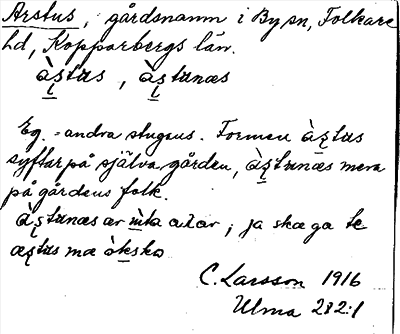 Arstus, gårdsnamn i By sn, Folkare
hd, Kopparbergs län.
àş̀tus, àş̀tunæs
Eg. = andra stugans. Formen àş̀tus
syftar på själva gården, àş̀tunæs mera
på gårdens folk.
àş̀tunæs ær ìnta aLar; ja skæ ga te
æş̀tus mæ òksko
C. Larsson 1916
Ulma 282:1